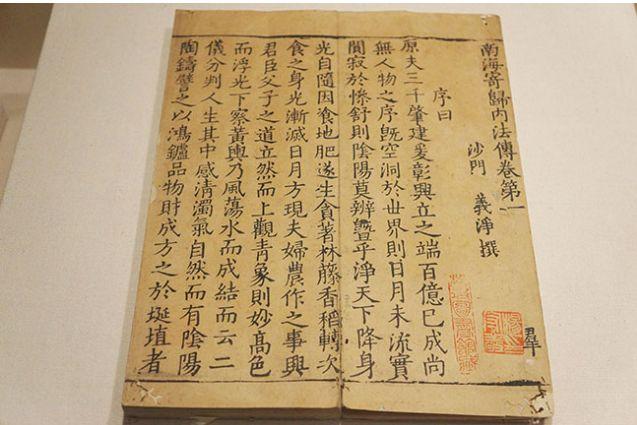 南海寄歸內法傳卷第一
沙門　義淨　撰
羣
序曰
原夫三千肇建爰彰興立之端百億已成尚
無人物之序既空洞於世界則日月未流實
閴寂於慘舒則陰陽莫辨暨乎淨天下降身
光自隨因飡地肥遂生貪著林藤香稻轉次
食之身光漸滅日月方現夫婦農作之事興
君臣父子之道立然而上觀青象則妙高色
而浮光下察黃輿乃風蕩水而成結而云二
儀分判人生其中感清濁氣自然而有陰陽
陶鑄譬之以鴻鑪品物財成方之於埏埴者